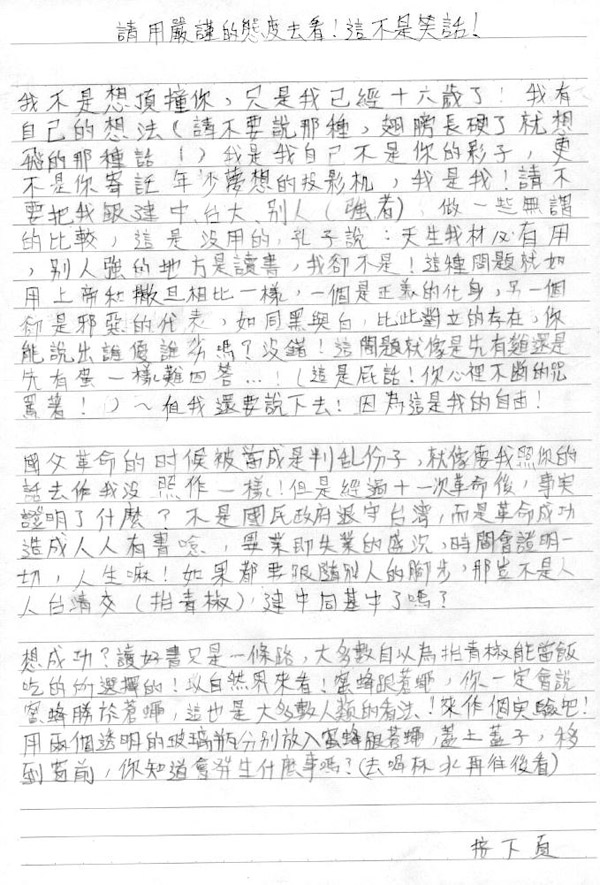 請用嚴謹的態度去看!這不是笑話!
我不是想頂撞你,只是我已經十六歲了!我有
自己的想法(請不要說那種,翅膀長硬了就想
飛的那種話!)我是我自己不是你的影子,更
不是你寄託年少夢想的投影机,我是我!請不
要把我跟建中、台大、別人(強者),做一些無謂
的比較,這是沒用的,孔子說:天生我材必有用
,別人強的地方是讀書,我卻不是!這種問題就如
用上帝和撒旦相比一樣,一個是正義的化身,另一個
卻是邪惡的代表,如同黑與白,比此對立的存在,你
能說出誰優誰劣嗎?沒錯!這問題就像是先有雞還是
先有蛋一樣難回答…!(這是屁話!你心裡不斷的咒
罵著!)~但我還要說下去!因為這是我的自由!
國父革命的时候被當成是判乱份子,就像要我照你的
話去作我沒照作一樣!但是經過十一次革命後,事實
證明了什麼?不是國民政府退守台灣,而是革命成功
造成人人有書唸,畢業即失業的盛況,時間會證明一
切,人生嘛!如果都要跟隨別人的腳步,那豈不是人
人台清交(抬青椒),建中同基中了嗎?
想成功?讀好書只是一條路,大多數自以為抬青椒能當飯
吃的所選擇的!以自然界來看!蜜蜂跟蒼蠅,你一定會說
蜜蜂勝於蒼蠅,這也是大多數人類的看法!來作個實驗吧!
用兩個透明的玻璃瓶分別放入蜜蜂跟蒼蠅,蓋上蓋子,移
到窗前,你知道會發生什麼事嗎?(去喝杯水再往後看)
按下頁